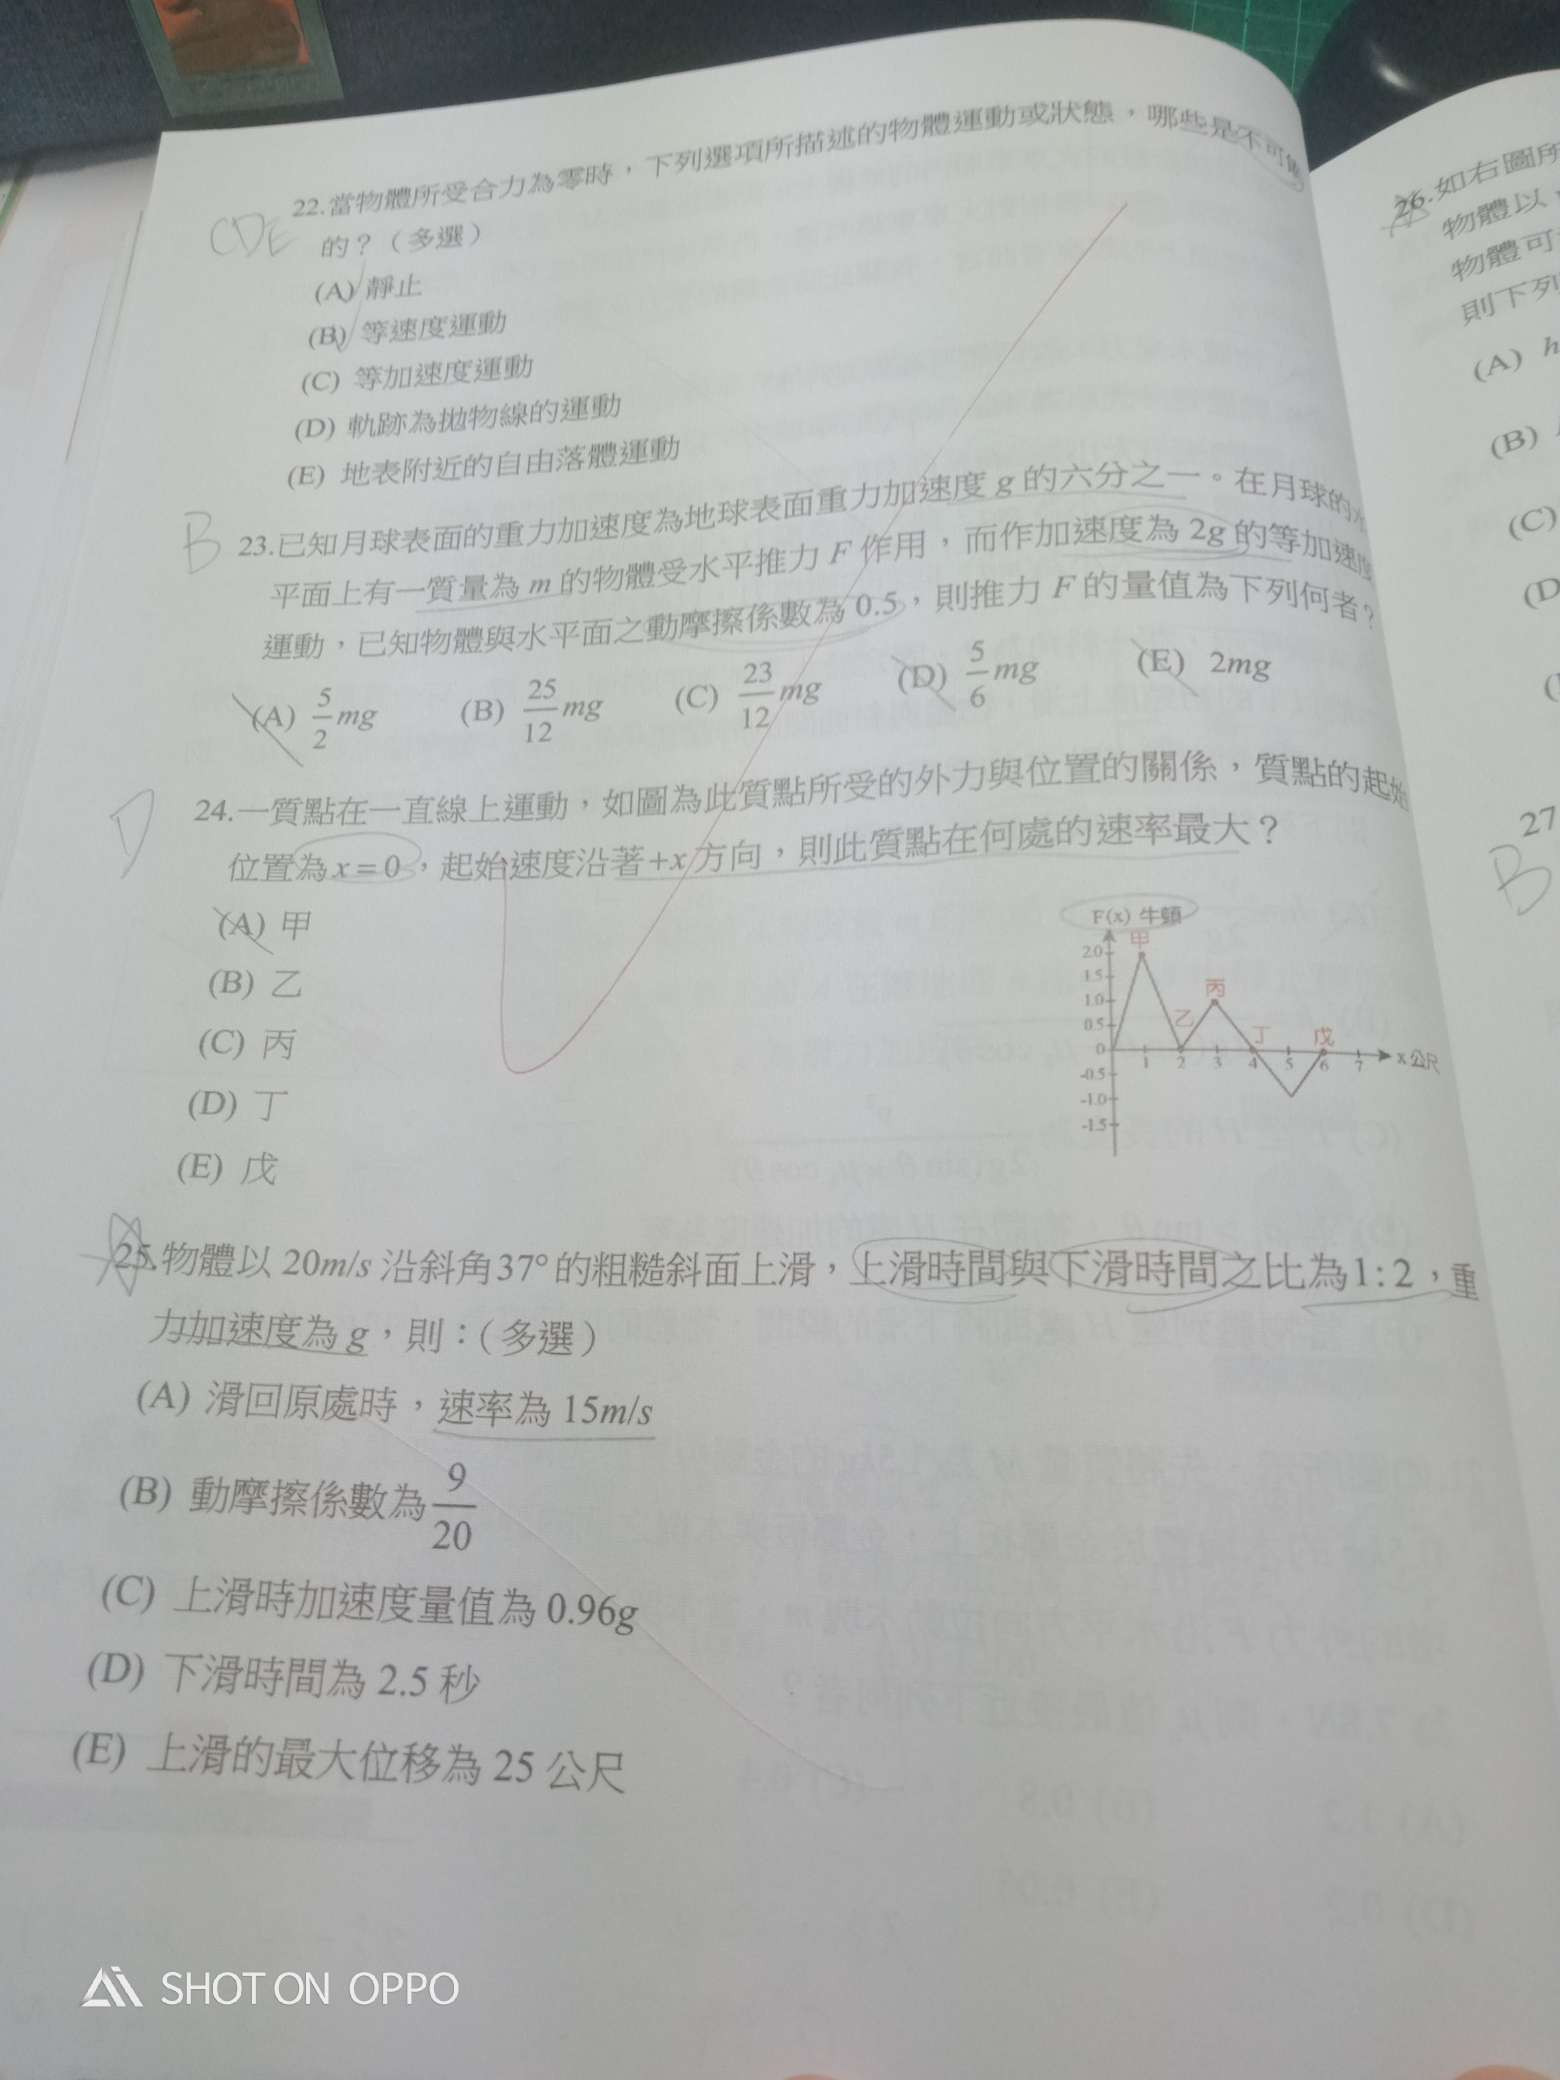 22.當物體所受合力為零時，下列選項所描述的物體運動或狀態，哪些是不可能
的？（多選）
CDE
(A) 靜止
(B) 等速度運動
(C) 等加速度運動
(D) 軌跡為拋物線的運動
(E) 地表附近的自由落體運動
B
23.已知月球表面的重力加速度為地球表面重力加速度 g 的六分之一。在月球的水
平面上有一質量為 m 的物體受水平推力 F 作用，而作加速度為 2g 的等加速度
運動，已知物體與水平面之動摩擦係數為 0.5，則推力 F 的量值為下列何者？
(A) 5/2 mg (B) 25/12 mg (C) 23/12 mg (D) 5/6 mg (E) 2mg
D
24.一質點在一直線上運動，如圖為此質點所受的外力與位置的關係，質點的起始
位置為 x = 0，起始速度沿著 +x 方向，則此質點在何處的速率最大？
(A) 甲
(B) 乙
(C) 丙
(D) 丁
(E) 戊
F(x) 牛頓
2.0
1.5
1.0
0.5
0
-0.5
-1.0
-1.5
甲
乙
丙
丁
戊
1 2 3 4 5 6 7
x 公尺
25.物體以 20m/s 沿斜角 37° 的粗糙斜面上滑，上滑時間與下滑時間之比為 1 : 2，重
力加速度為 g，則：（多選）
(A) 滑回原處時，速率為 15m/s
(B) 動摩擦係數為 9/20
(C) 上滑時加速度量值為 0.96g
(D) 下滑時間為 2.5 秒
(E) 上滑的最大位移為 25 公尺
26.如右圖所
物體以
物體可
則下列
(A) h
(B)
(C)
(D
27
B
SHOT ON OPPO